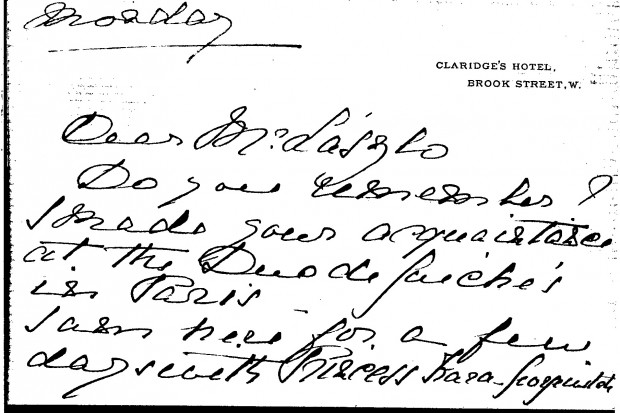 Monday
CLARIDGE'S HOTEL,
BROOK STREET, W.
Dear Mr László
Do you remember?
I made your acquaintance
at the Duc de Guiche's
in Paris –
I am here for a few
days with Princess Kara-Georgevitch